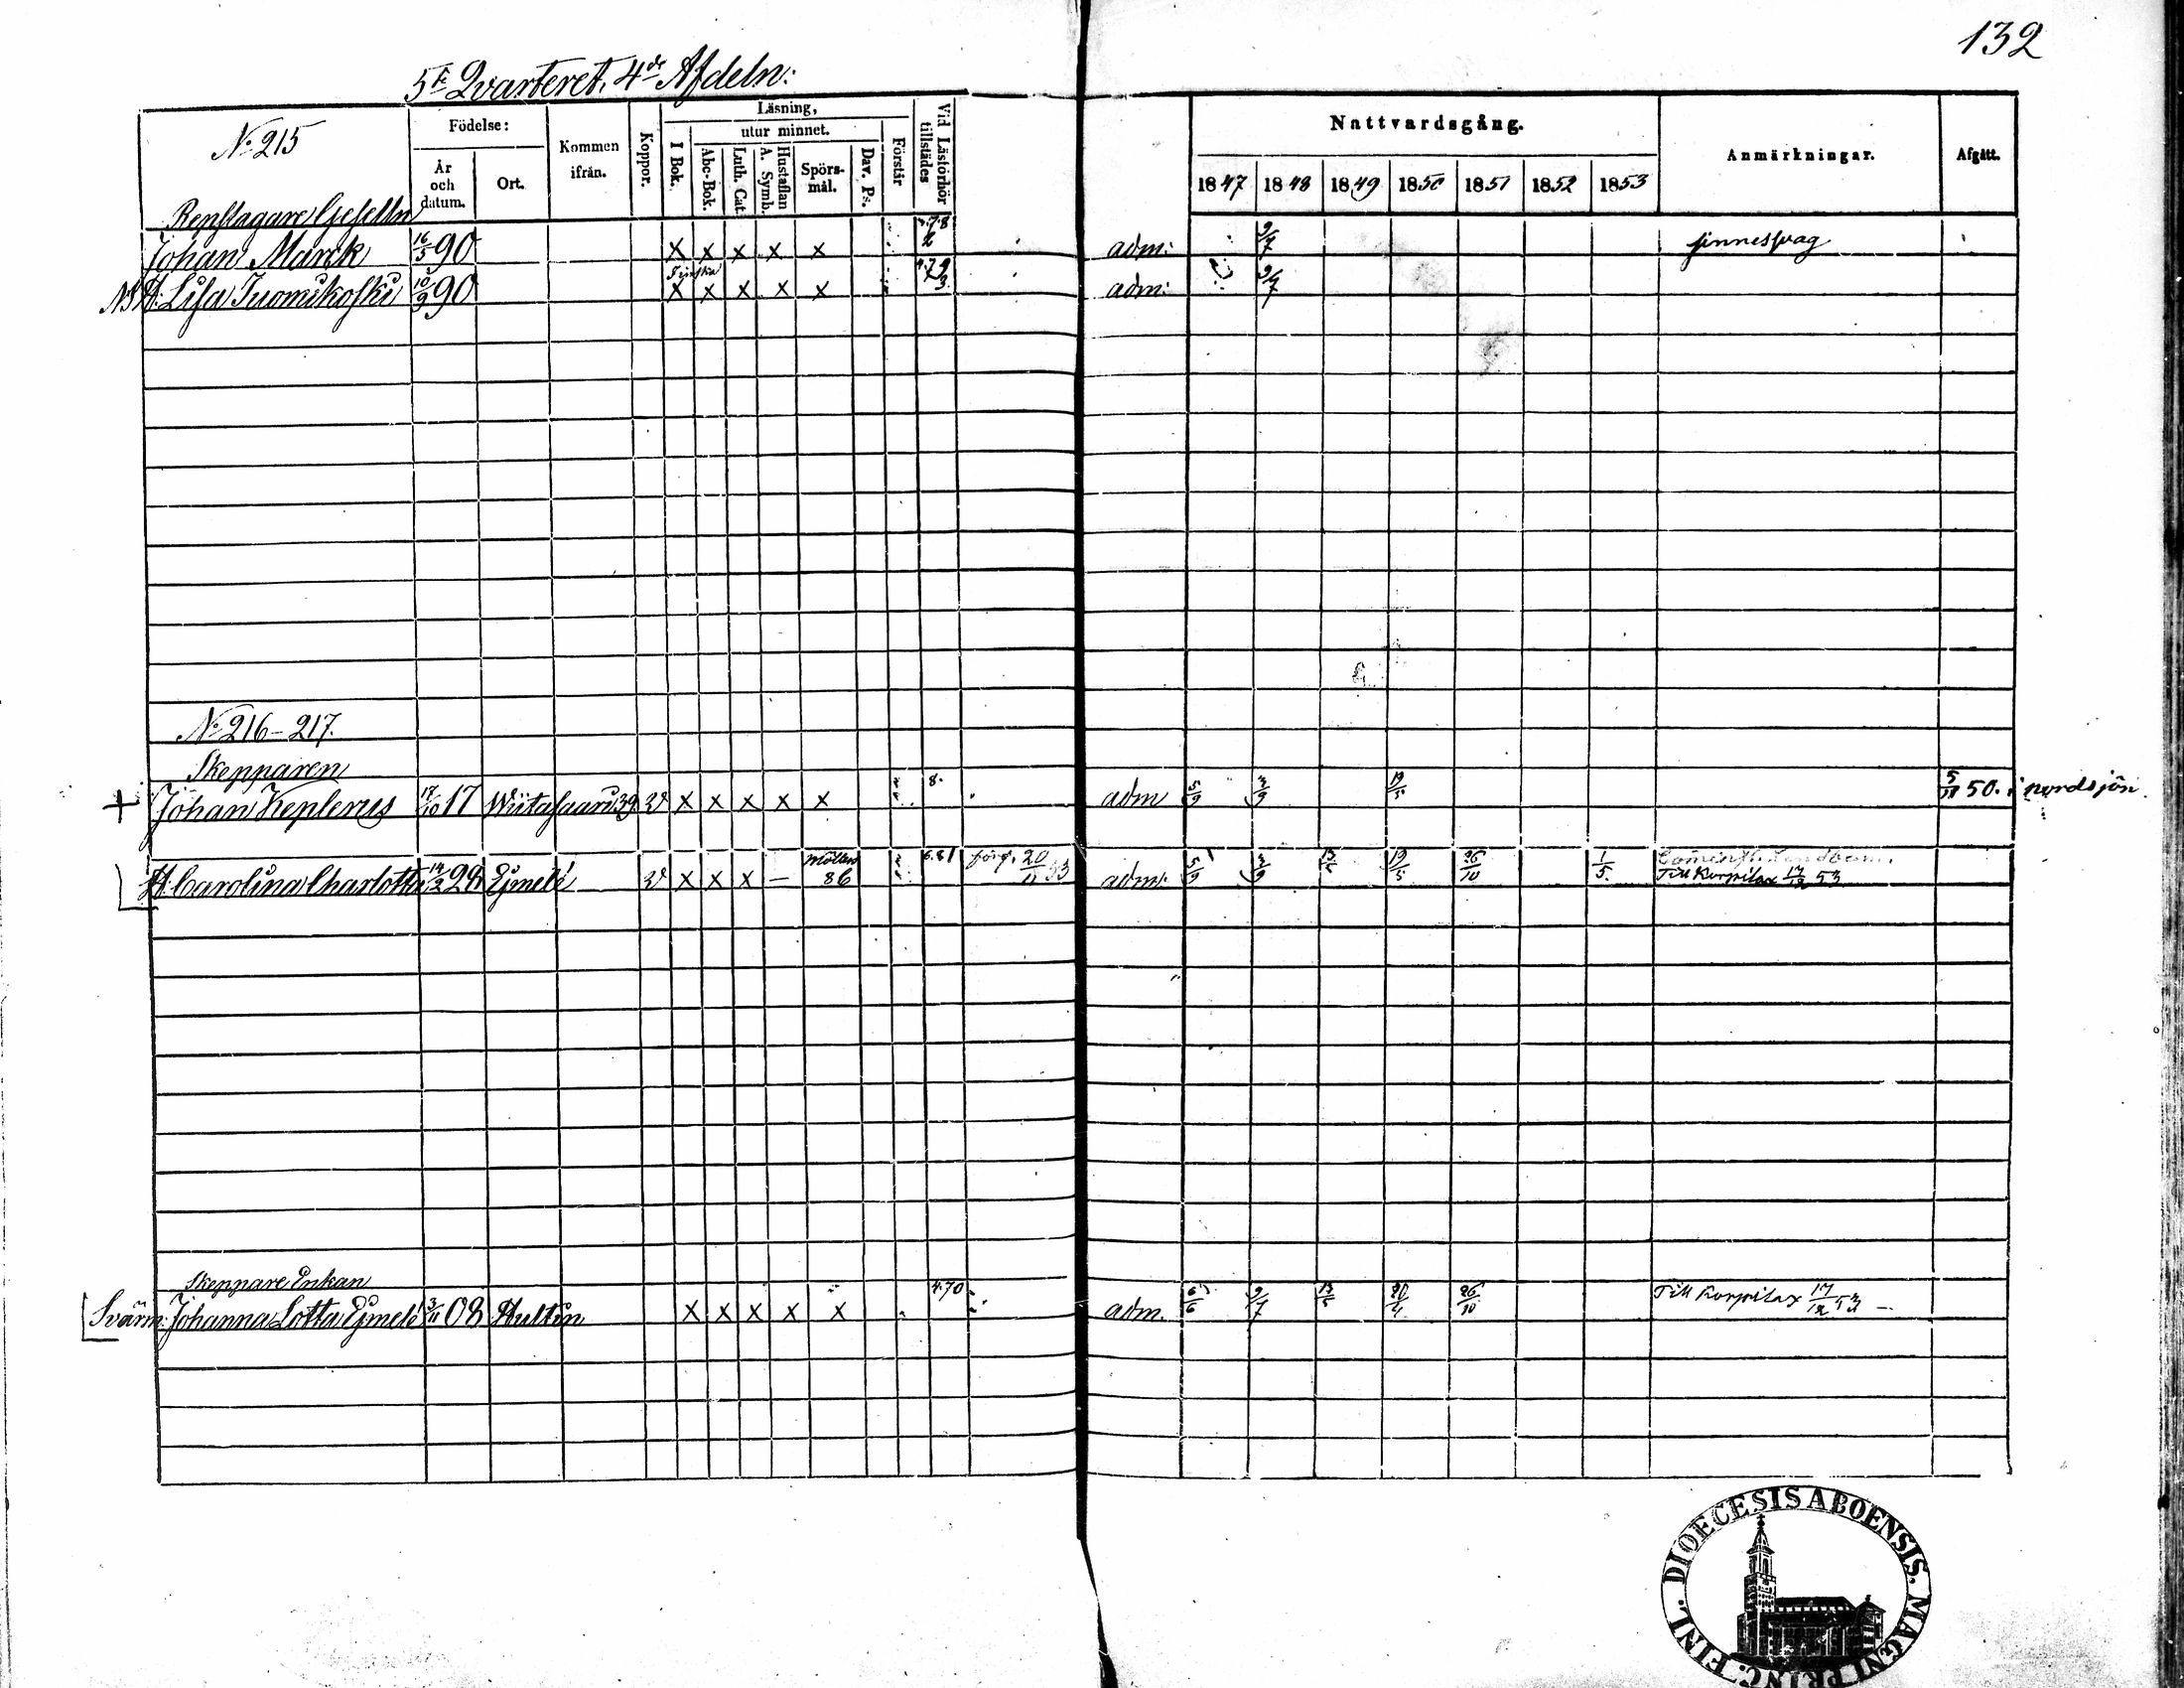 132
5te Qvarteret, 4de Afdeln:
No 215
Födelse:
År och datum.
Ort.
Kommen ifrån.
Koppor.
Läsning,
I Bok.
utur minnet.
Abc-Bok.
Luth. Cat.
Hustaflan A. Symb.
Spörsmål.
Dav. Ps.
Förstår
Vid Läsförhör tillstädes
Nattvardsgång.
1847 1848 1849 1850 1851 1852 1853
Anmärkningar.
Afgått.
Repslagare Gesellen
Johan Marck 16/5 90 x x x x x 7.8 2 adm: 9/7 sinnessvag
H. Lisa Tuomikoski 10/9 90 x x x x x adm: 9/7
No 216-217.
Skepparen
+ Johan Keplerus 17/10 17 Wiitasaari 39 v x x x x x 8. adm 5/9 3/9 19/5 5/11 50. i nordsjön
H. Carolina Charlotta 14/2 28 Ejmelé v x x x — 86 6.81 20/11 53 adm. 5/9 3/9 19/5 26/10 1/5
Till Korpilax 17/12 53
Skeppare Enkan
Svärm: Johanna Lotta Ejmelé 3/11 08 Hultin x x x x x 4.70 adm. 6/6 9/7 26/10 Till Korpilax 17/12 53 —
DIOECESIS ABOENSIS. MAGNI PRINC. FINL.